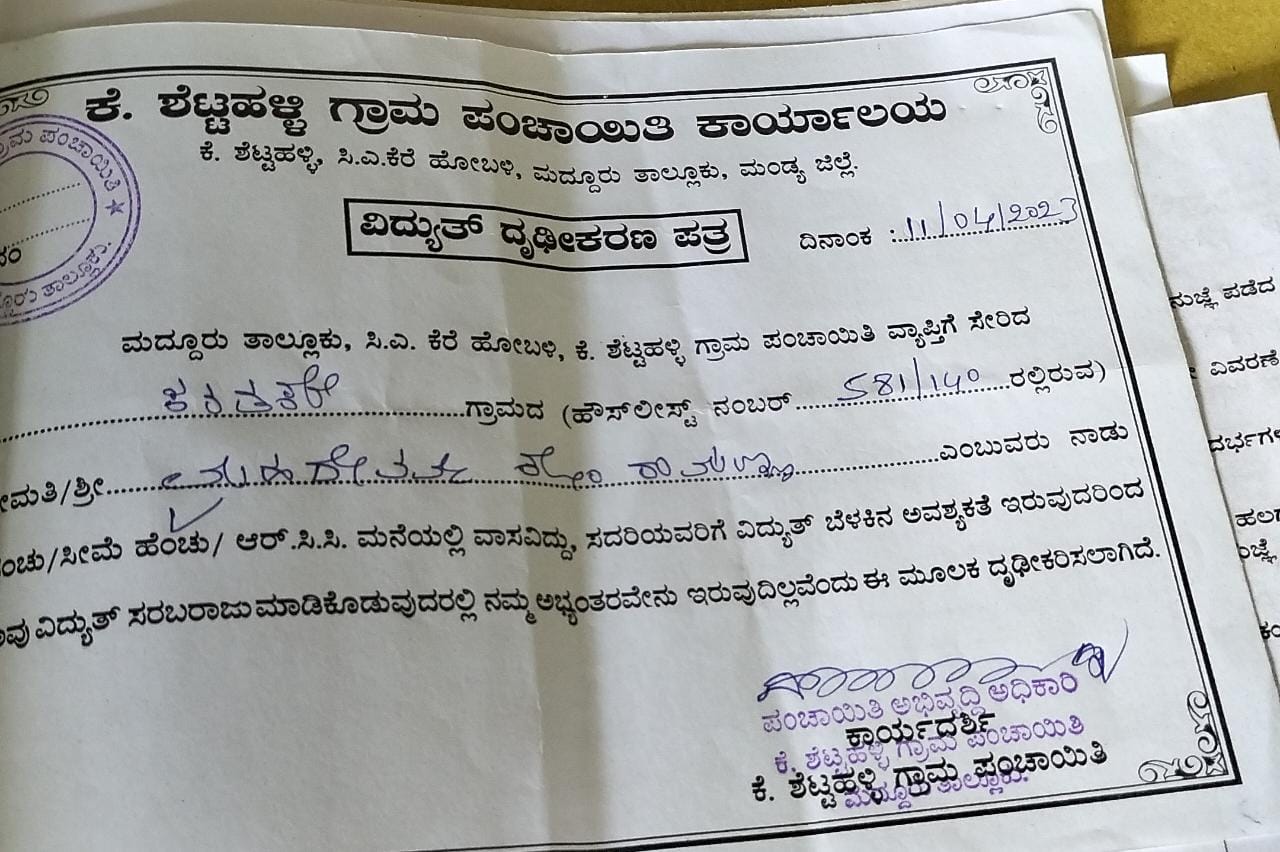 ಕೆ. ಶೆಟ್ಟಹಳ್ಳಿ ಗ್ರಾಮ ಪಂಚಾಯಿತಿ ಕಾರ್ಯಾಲಯ
ಕೆ. ಶೆಟ್ಟಹಳ್ಳಿ, ಸಿ.ಎ.ಕೆರೆ ಹೋಬಳಿ, ಮದ್ದೂರು ತಾಲ್ಲೂಕು, ಮಂಡ್ಯ ಜಿಲ್ಲೆ.
ಗ್ರಾಮ ಪಂಚಾಯಿತಿ
ತಾಲ್ಲೂಕು.
ವಿದ್ಯುತ್ ದೃಢೀಕರಣ ಪತ್ರ
ದಿನಾಂಕ : 11/04/2023
ಮದ್ದೂರು ತಾಲ್ಲೂಕು, ಸಿ.ಎ. ಕೆರೆ ಹೋಬಳಿ, ಕೆ. ಶೆಟ್ಟಹಳ್ಳಿ ಗ್ರಾಮ ಪಂಚಾಯಿತಿ ವ್ಯಾಪ್ತಿಗೆ ಸೇರಿದ
ಗ್ರಾಮದ (ಹೌಸ್‌ಲೀಸ್ಟ್ ನಂಬರ್ 581/140 ರಲ್ಲಿರುವ)
ಮತಿ/ಶ್ರೀ ಎಂಬುವರು ನಾಡು
ಹಂಚು/ಸೀಮೆ ಹೆಂಚು/ ಆರ್.ಸಿ.ಸಿ. ಮನೆಯಲ್ಲಿ ವಾಸವಿದ್ದು, ಸದರಿಯವರಿಗೆ ವಿದ್ಯುತ್ ಬೆಳಕಿನ ಅವಶ್ಯಕತೆ ಇರುವುದರಿಂದ
ವಿದ್ಯುತ್ ಸರಬರಾಜು ಮಾಡಿಕೊಡುವುದರಲ್ಲಿ ನಮ್ಮ ಅಭ್ಯಂತರವೇನು ಇರುವುದಿಲ್ಲವೆಂದು ಈ ಮೂಲಕ ದೃಢೀಕರಿಸಲಾಗಿದೆ.
ಪಂಚಾಯಿತಿ ಅಭಿವೃದ್ಧಿ ಅಧಿಕಾರಿ
ಕಾರ್ಯದರ್ಶಿ
ಕೆ. ಶೆಟ್ಟಹಳ್ಳಿ ಗ್ರಾಮ ಪಂಚಾಯಿತಿ
ಕೆ. ಶೆಟ್ಟಹಳ್ಳಿ ಗ್ರಾಮ ಪಂಚಾಯಿತಿ
ಮದ್ದೂರು ತಾಲ್ಲೂಕು.
ಪಡೆದ
ವಿವರಣೆ